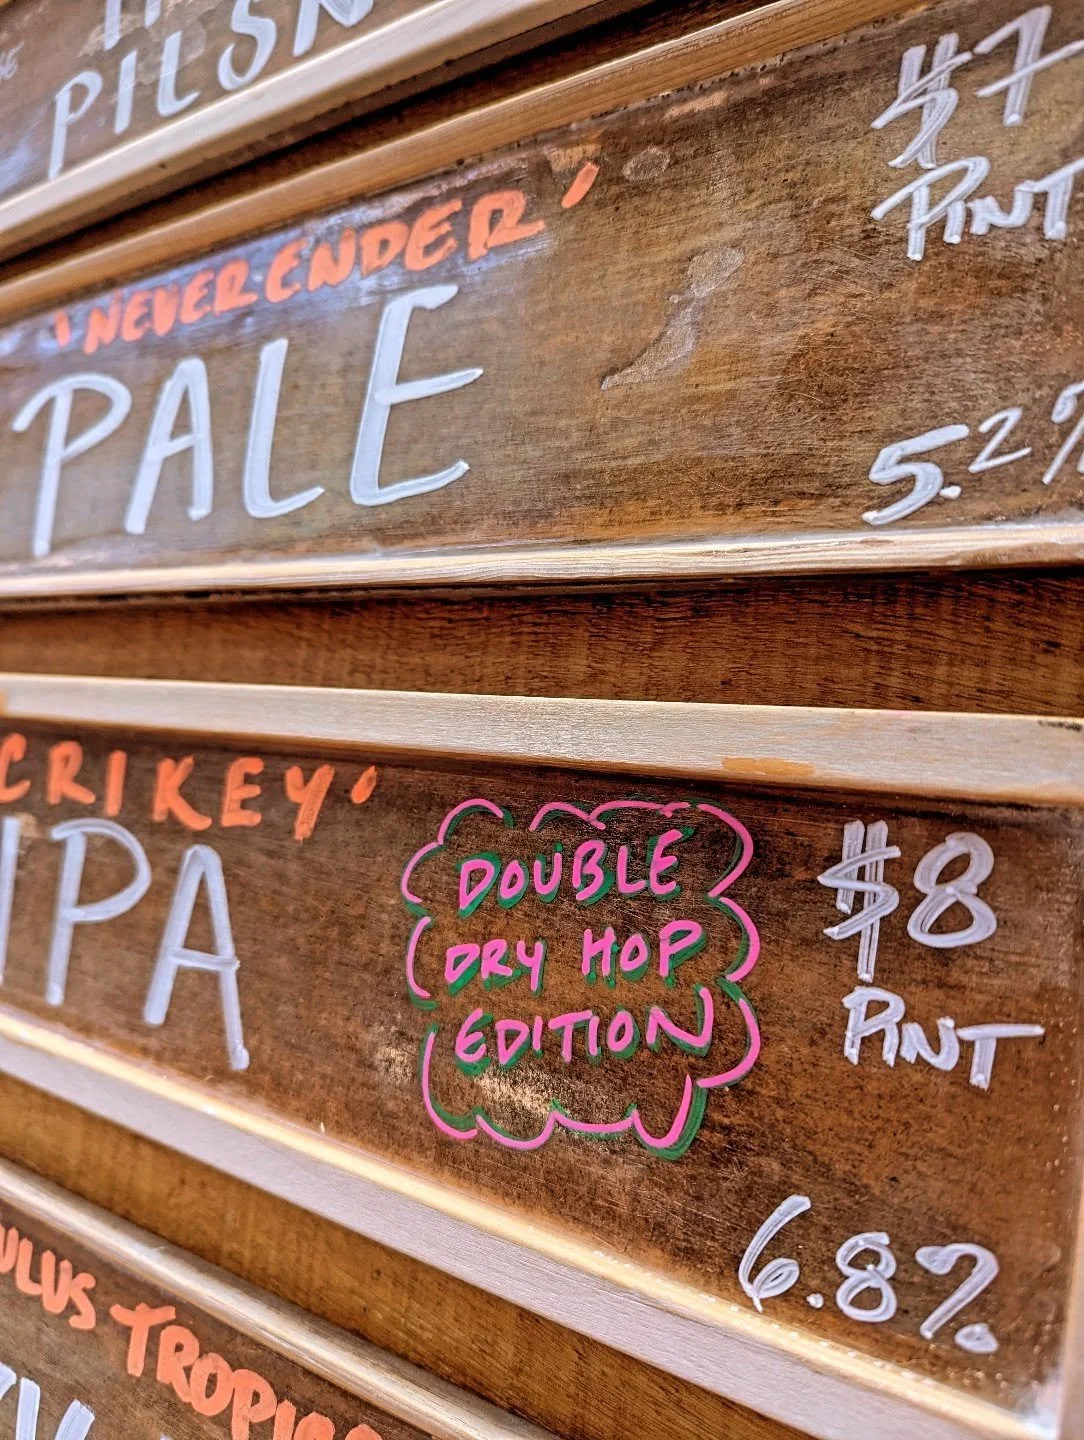 PILSN
'NEVERENDER'
PALE
$7
PINT
5.2%
CRIKEY'
IPA
DOUBLE
DRY HOP
EDITION
$8
PINT
6.8%
ULUS TROPIC